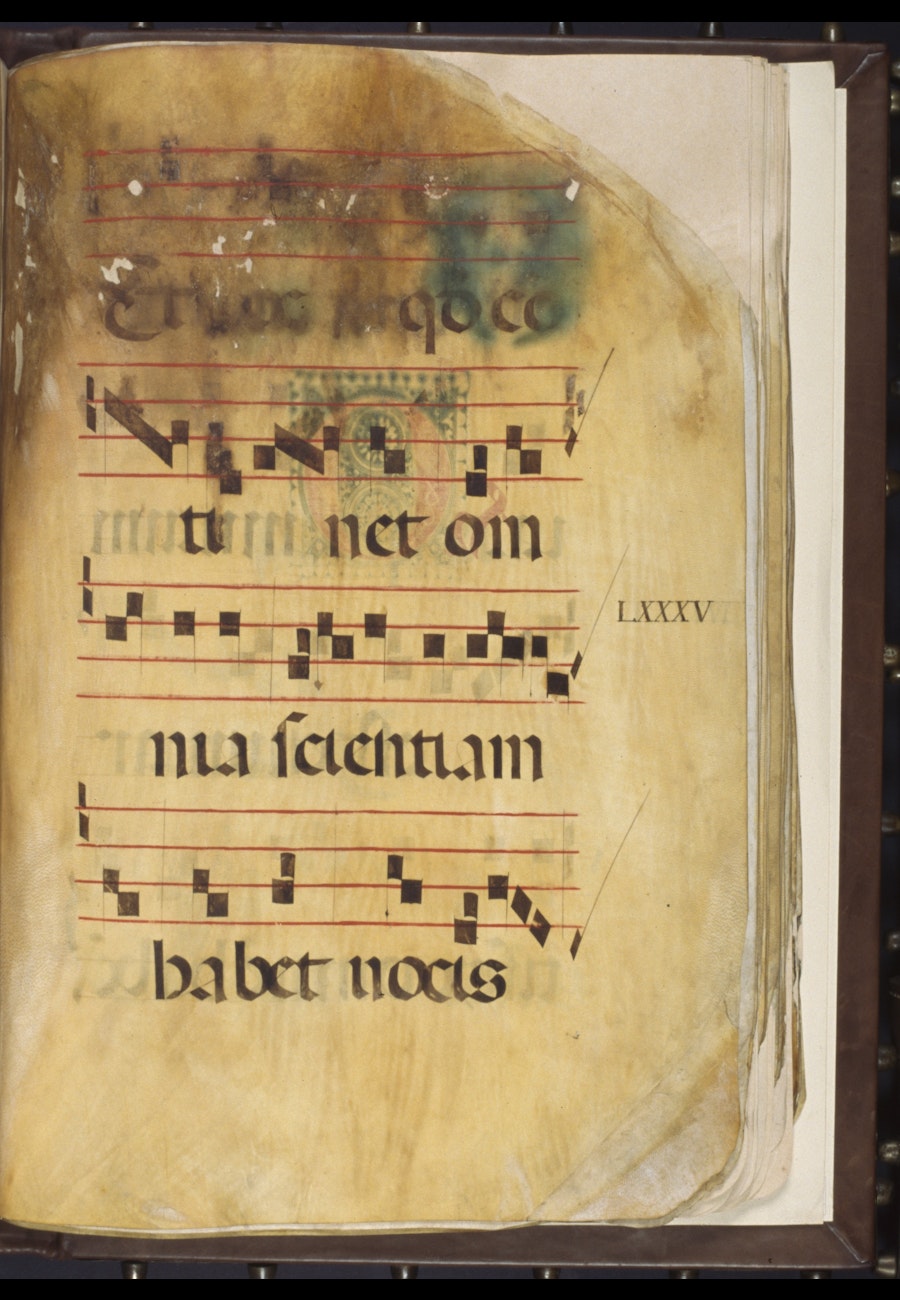 Et hoc qđ co
ti net om
LXXXV
nia scientiam
habet uocis